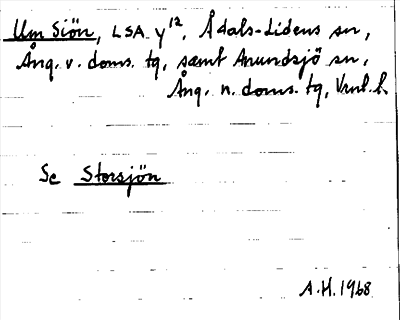 Um Siön, LSA y¹², Ådals-Lidens sn,
Ång. v. doms. tg, samt Anundsjö sn,
Ång. n. doms. tg, Vrnl. h
Se Storsjön
A.H. 1968